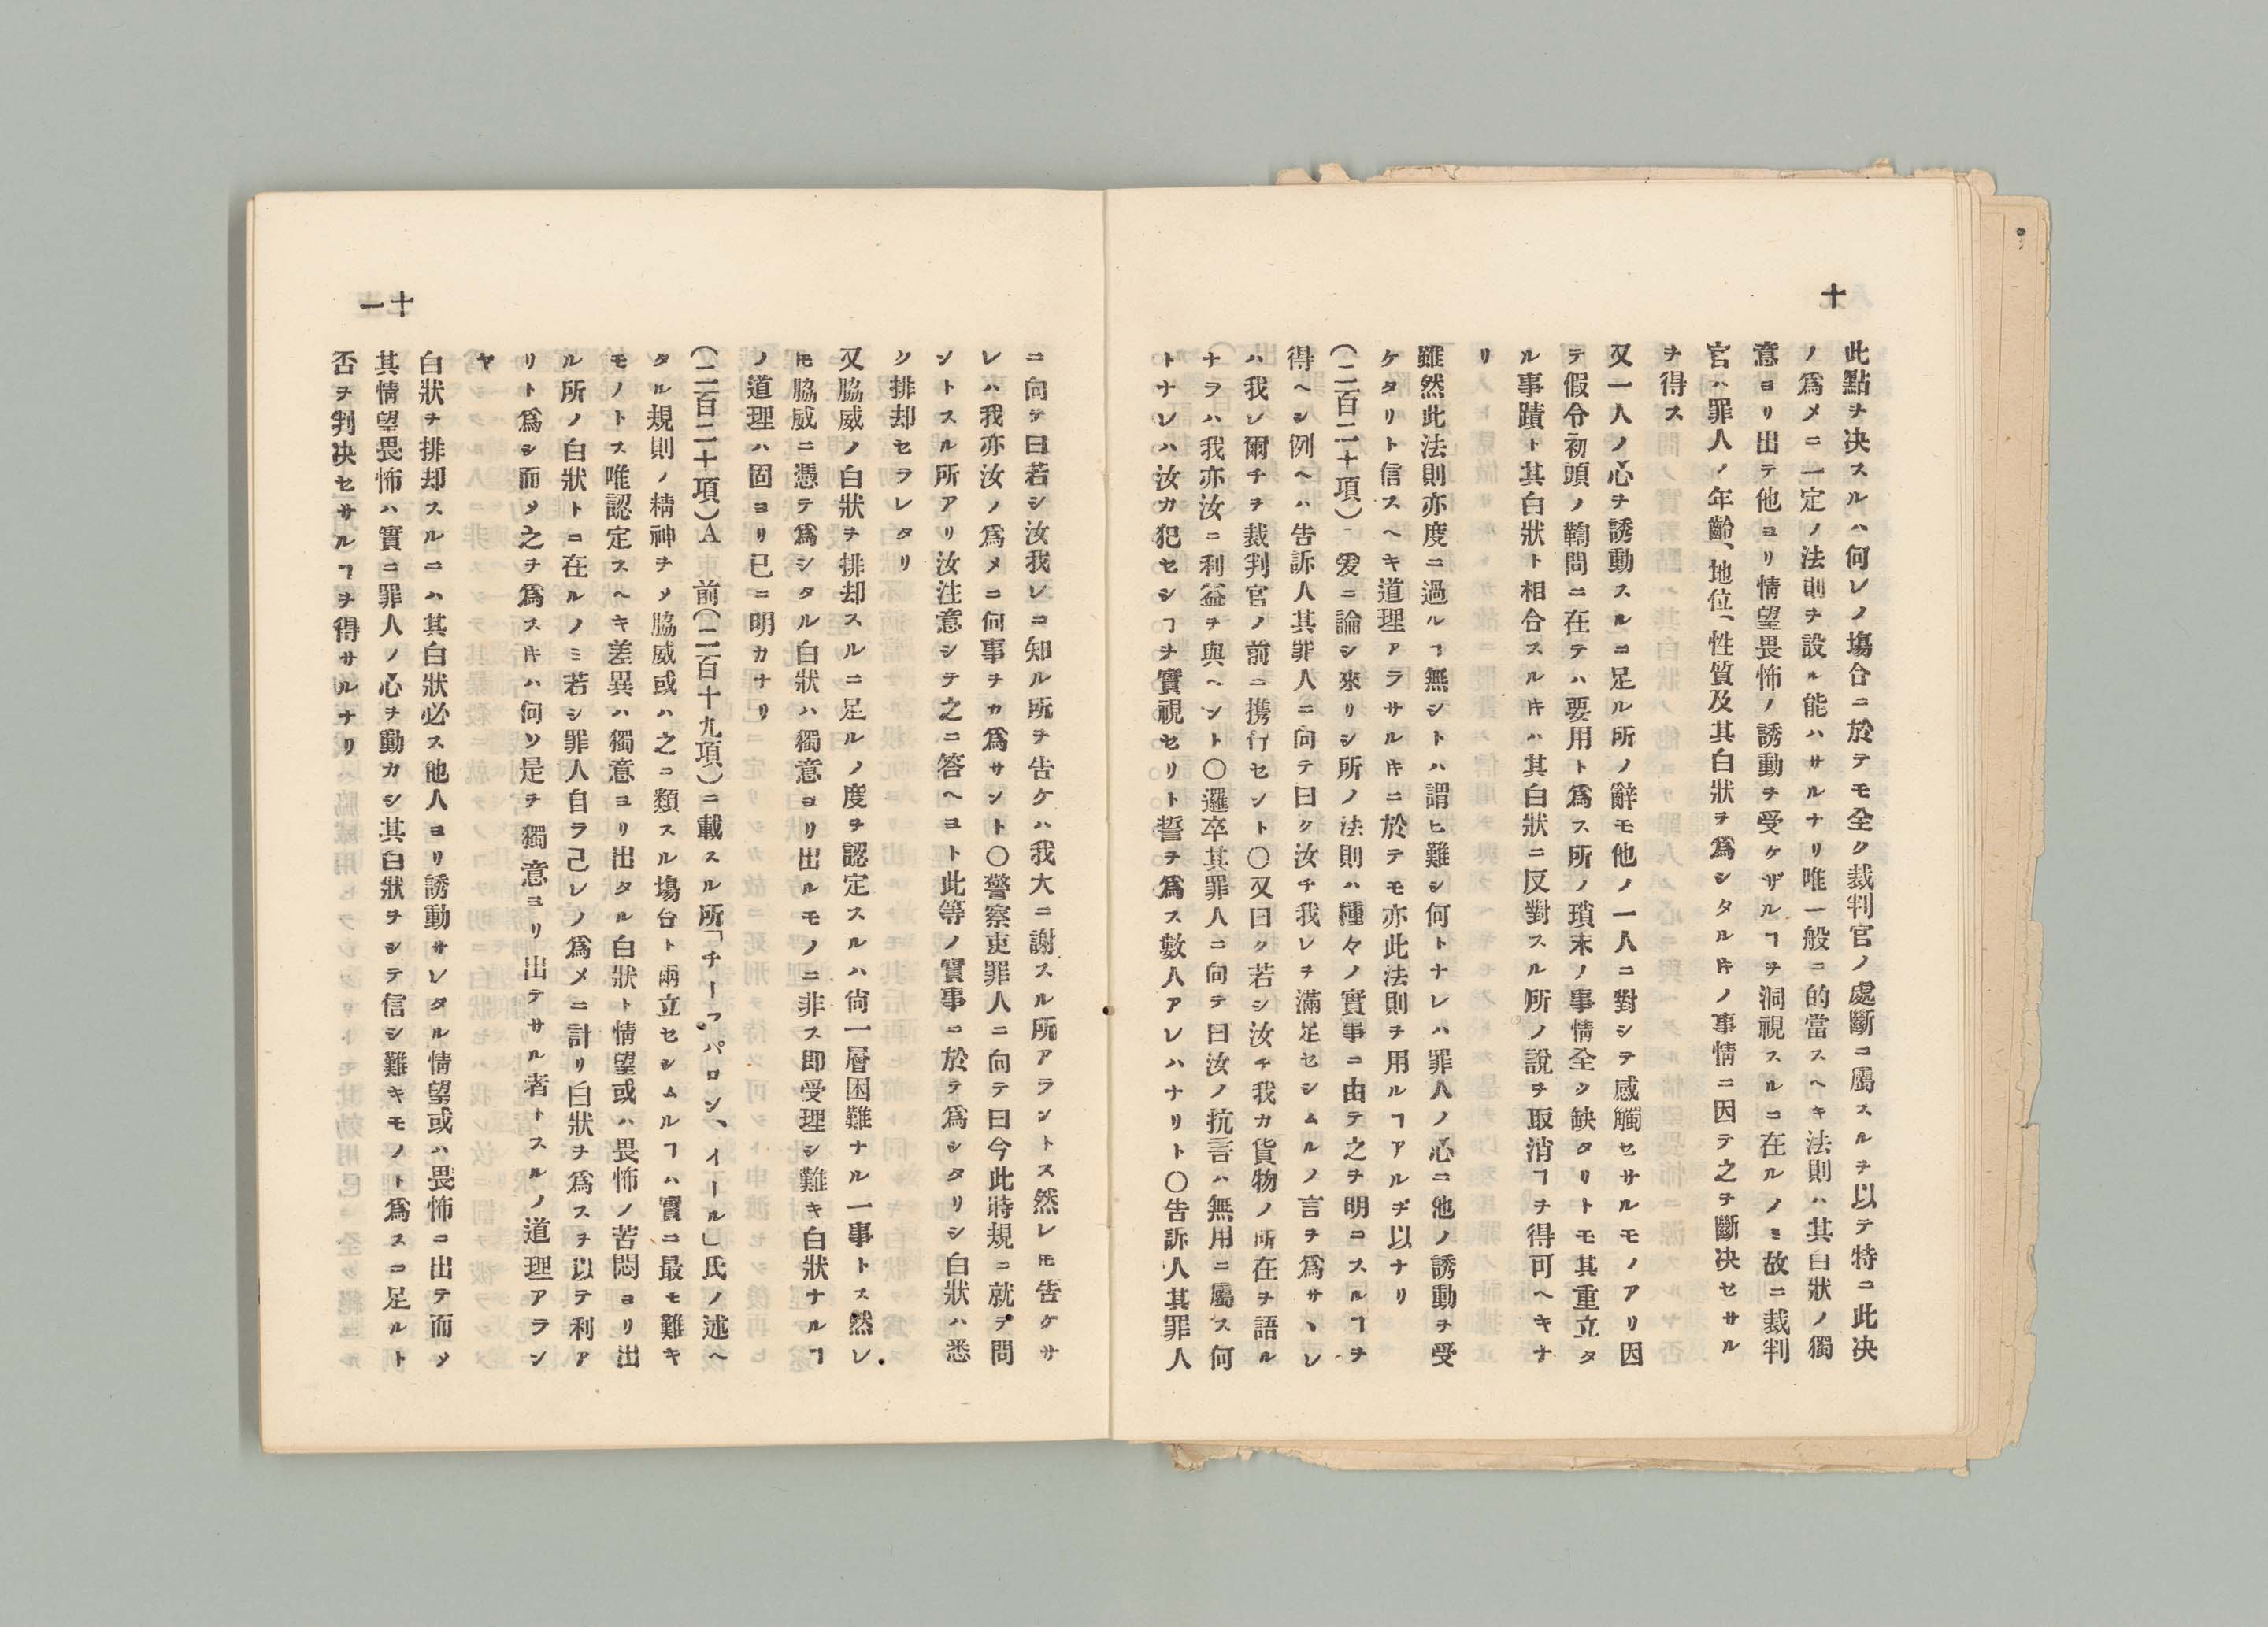 十
此點ヲ决スルハ何レノ塲合ニ於テモ全ク裁判官ノ處斷ニ屬スルヲ以テ特ニ此决
ノ爲メニ一定ノ法則ヲ設ル能ハサルナリ唯一般ニ的當スヘキ法則ハ其白狀ノ獨
意ヨリ出テ他ヨリ情望畏怖ノ誘動ヲ受ケザルヿヲ洞視スルニ在ルノミ故ニ裁判
官ハ罪人ノ年齡、地位、性質及其白狀ヲ爲シタルキノ事情ニ因テ之ヲ斷决セサル
ヲ得ス
又一人ノ心ヲ誘動スルニ足ル所ノ辭モ他ノ一人ニ對シテ感觸セサルモノアリ因
テ假令初頭ノ鞫問ニ在テハ要用ト爲ス所ノ瑣末ノ事情全ク缺タリトモ其重立タ
ル事蹟ト其白狀ト相合スルキハ其白狀ニ反對スル所ノ說ヲ取消ヿヲ得可ヘキナ
リ
雖然此法則亦度ニ過ルヿ無シトハ謂ヒ難シ何トナレハ罪人ノ心ニ他ノ誘動ヲ受
ケタリト信スヘキ道理アラサルキニ於テモ亦此法則ヲ用ルヿアルヂ以ナリ
(二百二十項) 爰ニ論シ來リシ所ノ法則ハ種々ノ實事ニ由テ之ヲ明ニスルヿヲ
得ヘシ例ヘハ告訴人其罪人ニ向テ曰ク汝チ我レヲ滿足セシムルノ言ヲ爲サヽレ
ハ我レ爾チヲ裁判官ノ前ニ携行セント〇又曰ク若シ汝チ我カ貨物ノ所在ヲ語ル
ナラハ我亦汝ニ利益ヲ與ヘント〇邏卒其罪人ニ向テ曰汝ノ抗言ハ無用ニ屬ス何
トナレハ汝カ犯セシヿヲ實視セリト誓ヲ爲ス數人アレハナリト〇告訴人其罪人
ニ向テ曰若シ汝我レニ知ル所ヲ告ケハ我大ニ謝スル所アラントス然レモ告ケサ
レハ我亦汝ノ爲メニ何事ヲカ爲サント〇警察吏罪人ニ向テ曰今此時規ニ就テ問
ントスル所アリ汝注意シテ之ニ答ヘヨト此等ノ實事ニ於テ爲シタリシ白狀ハ悉
ク排却セラレタリ
又脇威ノ白狀ヲ排却スルニ足ルノ度ヲ認定スルハ尙一層困難ナル一事トス然レ
𪜈脇威ニ憑テ爲シタル白狀ハ獨意ヨリ出ルモノニ非ス即受理シ難キ白狀ナルヿ
ノ道理ハ固ヨリ已ニ明カナリ
(二百二十項)A 前(二百十九項)ニ載スル所「チーフ、パロン、イール」氏ノ述ヘ
タル規則ノ精神ヲメ脇威或ハ之ニ類スル塲台ト兩立セシムルヿハ實ニ最モ難キ
モノトス唯認定スヘキ差異ハ獨意ヨリ出タル白狀ト情望或ハ畏怖ノ苦悶ヨリ出
ル所ノ白狀トニ在ルノミ若シ罪人自ラ己レノ爲メニ計リ白狀ヲ爲スヲ以テ利ア
リト爲シ而メ之ヲ爲スキハ何ソ是ヲ獨意ヨリ出テサル者トスルノ道理アラン
ヤ
白狀ヲ排却スルニハ其白狀必ス他人ヨリ誘動サレタル情望或ハ畏怖ニ出テ而メ
其情望畏怖ハ實ニ罪人ノ心ヲ動カシ其白狀ヲシテ信シ難キモノト爲スニ足ルト
否ヲ判决セサルヿヲ得サルナリ
十一